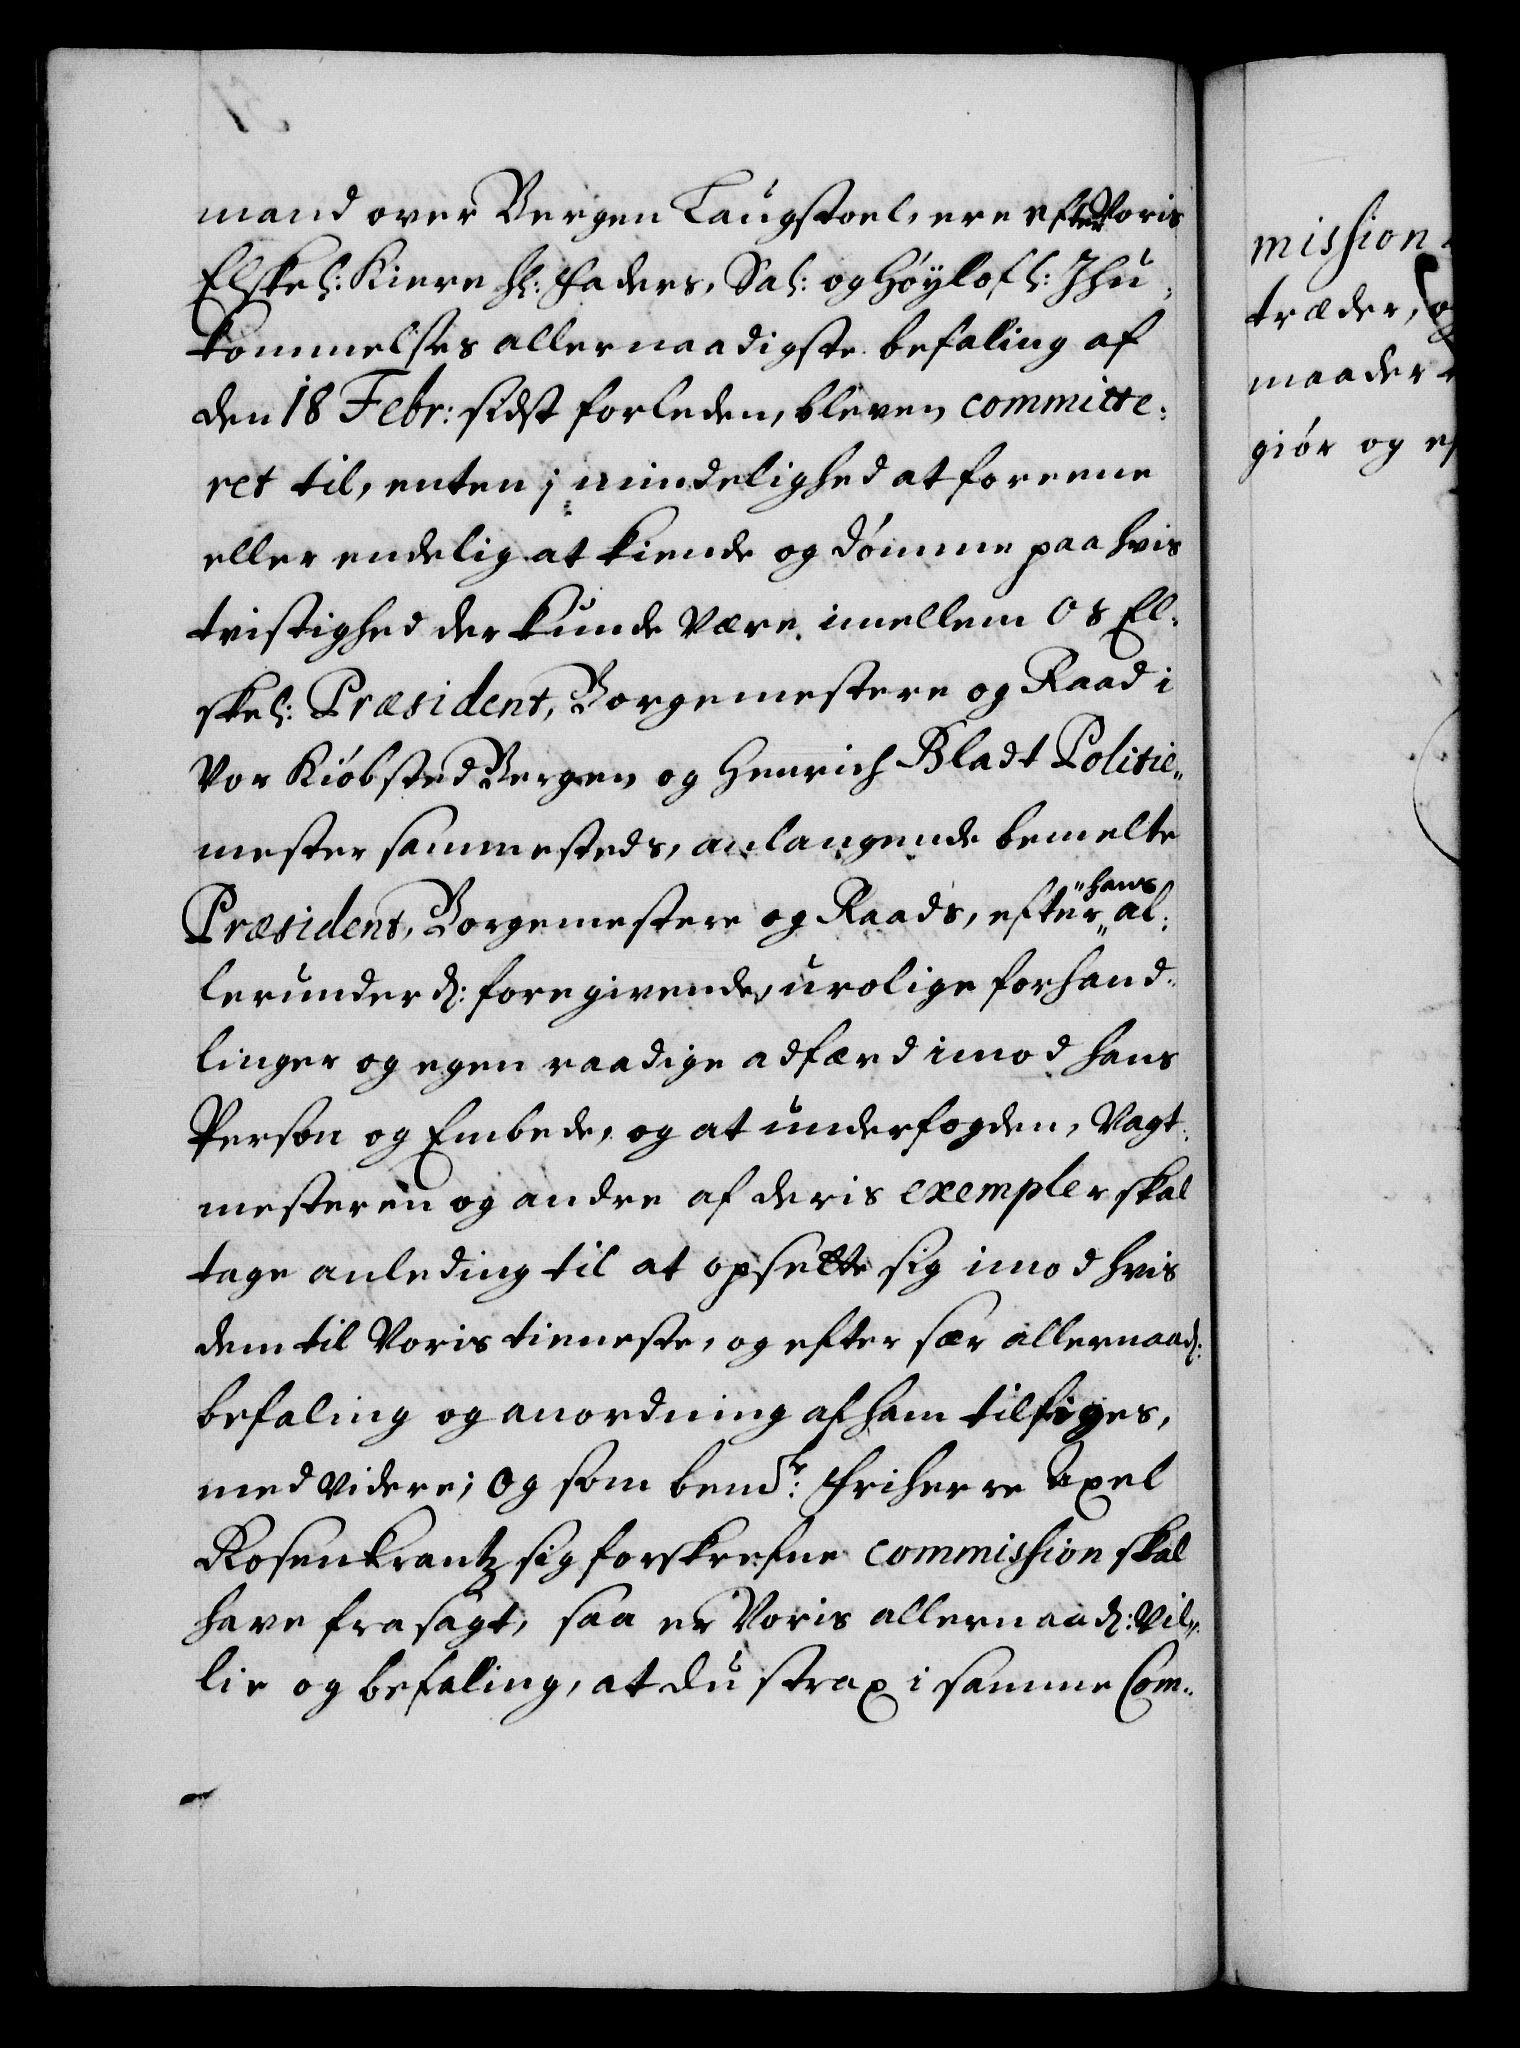 mand over Bergen Laugstoel, ere efter Voris
Elskel: Kiere Hr: Faders, Sal: og Høylofl: Ihu-
kommelses allernaadigste befaling af
den 18 Febr: sidst forleden, bleven committe-
ret til, enten i mindelighed at foreene
eller endelig at kiende og dømme paa hvis
tvistighed der kunde være imellem os El-
skel: Præsident, Borgemestere og Raad i
Vor Kiøbsted Bergen og Henrich Bladt Politie-
mester sammesteds, anlangende bemelte
Præsident, Borgemestere og Raads, efter hans al-
lerunderd: foregivende, urolige forhand-
linger og egenraadige adfærd imod hans
Person og Embede, og at underfogden, Vagt-
mesteren og andre af deris exempler skal
tage anleding til at opsette sig imod hvis
dem til Voris tieneste, og efter sær allernaad:
befaling og anordning af ham tilsiges,
med videre; og som bemte: Friherre Axel
Rosenkrantz sig forskrefne commission skal
have frasagt, saa er Voris allernaad: Vil-
lie og befaling, at du strax i samme Com-
mission
træder, og
maader
giør og ef